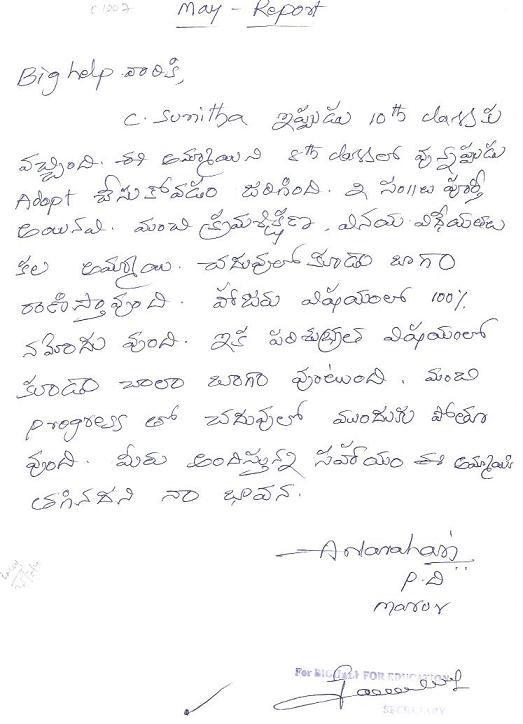 C1007
May - Report
Big help వారికి,
C. Sunitha ఇప్పుడు 10th class కు
వచ్చింది. ఈ అమ్మాయిని 8th classలో వున్నప్పుడు
Adopt చేసుకోవడం జరిగింది. ఇ సం॥లు పూర్తి
అయినవి. మంచి క్రమశిక్షణ, వినయ విధేయతలు
కల అమ్మాయి. చదువులో కూడా బాగా
రాణిస్తావుంది. హాజరు విషయంలో 100%
నమోదు వుంది. ఇక పరిశుభ్రత విషయంలో
కూడా చాలా బాగా వుంటుంది. మంచి
progress తో చదువులో ముందుకు పోతూ
వుంది. మీరు అందిస్తున్న సహాయం ఈ అమ్మాయికి
తగినదని నా భావన.
P.D
For BIGHELP FOR EDUCATION
SECRETARY